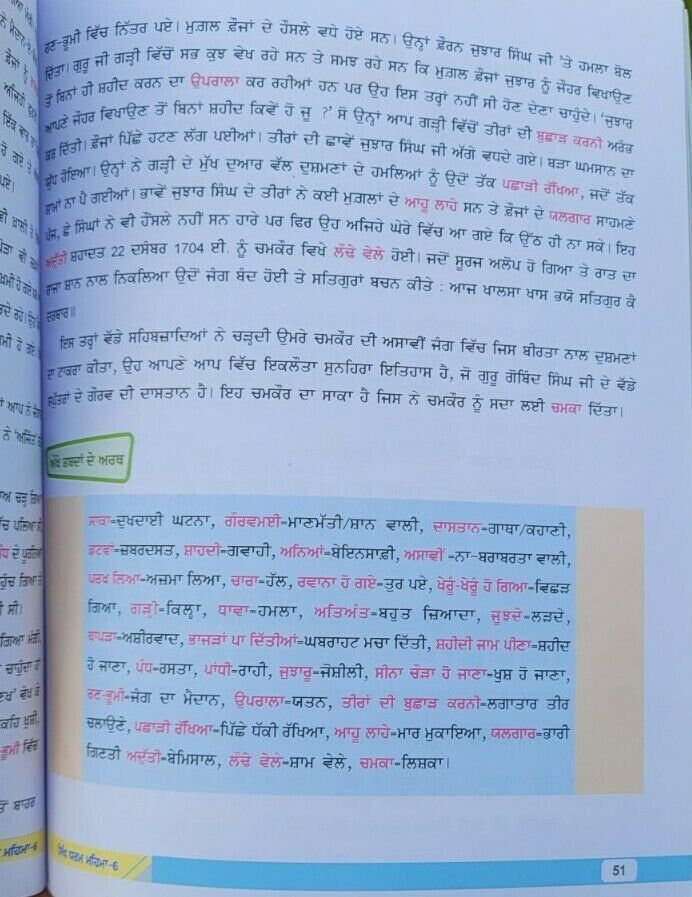 ਰਣ-ਭੂਮੀ ਵਿੱਚ ਨਿੱਤਰ ਪਏ। ਮੁਗ਼ਲ ਫ਼ੌਜਾਂ ਦੇ ਹੌਸਲੇ ਵਧੇ ਹੋਏ ਸਨ। ਉਨ੍ਹਾਂ ਫ਼ੌਰਨ ਜੁਝਾਰ ਸਿੰਘ ਜੀ 'ਤੇ ਹਮਲਾ ਬੋਲ
ਦਿੱਤਾ। ਗੁਰੂ ਜੀ ਗੜੀ ਵਿੱਚੋਂ ਸਭ ਕੁਝ ਵੇਖ ਰਹੇ ਸਨ ਤੇ ਸਮਝ ਰਹੇ ਸਨ ਕਿ ਮੁਗ਼ਲ ਫ਼ੌਜਾਂ ਜੁਝਾਰ ਨੂੰ ਜੌਹਰ ਵਿਖਾਉਣ
ਤੋਂ ਬਿਨਾਂ ਹੀ ਸ਼ਹੀਦ ਕਰਨ ਦਾ ਉਪਰਾਲਾ ਕਰ ਰਹੀਆਂ ਹਨ ਪਰ ਉਹ ਇਸ ਤਰ੍ਹਾਂ ਨਹੀਂ ਸੀ ਹੋਣ ਦੇਣਾ ਚਾਹੁੰਦੇ। 'ਜੁਝਾਰ
ਆਪਣੇ ਜੌਹਰ ਵਿਖਾਉਣ ਤੋਂ ਬਿਨਾਂ ਸ਼ਹੀਦ ਕਿਵੇਂ ਹੋ ਜੂ ?' ਸੋ ਉਨ੍ਹਾਂ ਆਪ ਗੜੀ ਵਿੱਚੋਂ ਤੀਰਾਂ ਦੀ ਬੁਛਾੜ ਕਰਨੀ ਅਰੰਭ
ਕਰ ਦਿੱਤੀ। ਫ਼ੌਜਾਂ ਪਿੱਛੇ ਹਟਣ ਲੱਗ ਪਈਆਂ। ਤੀਰਾਂ ਦੀ ਛਾਵੇਂ ਜੁਝਾਰ ਸਿੰਘ ਜੀ ਅੱਗੇ ਵਧਦੇ ਗਏ। ਬੜਾ ਘਮਸਾਨ ਦਾ
ਯੁੱਧ ਹੋਇਆ। ਉਨ੍ਹਾਂ ਨੇ ਗੜੀ ਦੇ ਮੁੱਖ ਦੁਆਰ ਵੱਲ ਦੁਸ਼ਮਣਾਂ ਦੇ ਹਮਲਿਆਂ ਨੂੰ ਉਦੋਂ ਤੱਕ ਪਛਾੜੀ ਰੱਖਿਆ, ਜਦੋਂ ਤੱਕ
ਸ਼ਾਮਾਂ ਨਾ ਪੈ ਗਈਆਂ। ਭਾਵੇਂ ਜੁਝਾਰ ਸਿੰਘ ਦੇ ਤੀਰਾਂ ਨੇ ਕਈ ਮੁਗ਼ਲਾਂ ਦੇ ਆਹੂ ਲਾਹੇ ਸਨ ਤੇ ਫ਼ੌਜ ਦੇ ਯਲਗਾਰ ਸਾਹਮਣੇ
ਪੰਜ, ਛੇ ਸਿੰਘਾਂ ਨੇ ਵੀ ਹੌਂਸਲੇ ਨਹੀਂ ਸਨ ਹਾਰੇ ਪਰ ਫਿਰ ਉਹ ਅਜਿਹੇ ਘੇਰੇ ਵਿੱਚ ਆ ਗਏ ਕਿ ਉੱਠ ਹੀ ਨਾ ਸਕੇ। ਇਹ
ਅਦੁੱਤੀ ਸ਼ਹਾਦਤ 22 ਦਸੰਬਰ 1704 ਈ. ਨੂੰ ਚਮਕੌਰ ਵਿਖੇ ਲੌਢੇ ਵੇਲੇ ਹੋਈ। ਜਦੋਂ ਸੂਰਜ ਅਲੋਪ ਹੋ ਗਿਆ ਤੇ ਰਾਤ ਦਾ
ਰਾਜਾ ਸ਼ਾਨ ਨਾਲ ਨਿਕਲਿਆ ਉਦੋਂ ਜੰਗ ਬੰਦ ਹੋਈ ਤੇ ਸਤਿਗੁਰਾਂ ਬਚਨ ਕੀਤੇ : ਆਜ ਖਾਲਸਾ ਖਾਸ ਭਯੋ ਸਤਿਗੁਰ ਕੈ
ਦਰਬਾਰ॥
ਇਸ ਤਰ੍ਹਾਂ ਵੱਡੇ ਸਹਿਬਜ਼ਾਦਿਆਂ ਨੇ ਚੜ੍ਹਦੀ ਉਮਰੇ ਚਮਕੌਰ ਦੀ ਅਸਾਵੀਂ ਜੰਗ ਵਿੱਚ ਜਿਸ ਬੀਰਤਾ ਨਾਲ ਦੁਸ਼ਮਣਾਂ
ਦਾ ਟਾਕਰਾ ਕੀਤਾ, ਉਹ ਆਪਣੇ ਆਪ ਵਿੱਚ ਇਕਲੌਤਾ ਸੁਨਹਿਰਾ ਇਤਿਹਾਸ ਹੈ, ਜੋ ਗੁਰੂ ਗੋਬਿੰਦ ਸਿੰਘ ਜੀ ਦੇ ਵੱਡੇ
ਸਪੁੱਤਰਾਂ ਦੇ ਗੌਰਵ ਦੀ ਦਾਸਤਾਨ ਹੈ। ਇਹ ਚਮਕੌਰ ਦਾ ਸਾਕਾ ਹੈ ਜਿਸ ਨੇ ਚਮਕੌਰ ਨੂੰ ਸਦਾ ਲਈ ਚਮਕਾ ਦਿੱਤਾ।
ਔਖੇ ਸ਼ਬਦਾਂ ਦੇ ਅਰਥ
ਸਾਕਾ=ਦੁਖਦਾਈ ਘਟਨਾ, ਗੌਰਵਮਈ=ਮਾਣਮੱਤੀ/ਸ਼ਾਨ ਵਾਲੀ, ਦਾਸਤਾਨ=ਗਾਥਾ/ਕਹਾਣੀ,
ਡਟਵਾਂ=ਜ਼ਬਰਦਸਤ, ਸ਼ਾਹਦੀ=ਗਵਾਹੀ, ਅਨਿਆਂ=ਬੇਇਨਸਾਫ਼ੀ, ਅਸਾਵੀਂ =ਨਾ-ਬਰਾਬਰਤਾ ਵਾਲੀ,
ਪਰਖ ਲਿਆ=ਅਜ਼ਮਾ ਲਿਆ, ਚਾਰਾ=ਹੱਲ, ਰਵਾਨਾ ਹੋ ਗਏ=ਤੁਰ ਪਏ, ਖੇਰੂੰ-ਖੇਰੂੰ ਹੋ ਗਿਆ=ਵਿਛੜ
ਗਿਆ, ਗੜ੍ਹੀ=ਕਿਲ੍ਹਾ, ਧਾਵਾ=ਹਮਲਾ, ਅਤਿਅੰਤ=ਬਹੁਤ ਜ਼ਿਆਦਾ, ਜੂਝਦੇ=ਲੜਦੇ,
ਥਾਪੜਾ=ਅਸ਼ੀਰਵਾਦ, ਭਾਜੜਾਂ ਪਾ ਦਿੱਤੀਆਂ=ਘਬਰਾਹਟ ਮਚਾ ਦਿੱਤੀ, ਸ਼ਹੀਦੀ ਜਾਮ ਪੀਣਾ=ਸ਼ਹੀਦ
ਹੋ ਜਾਣਾ, ਪੰਧ=ਰਸਤਾ, ਪਾਂਧੀ=ਰਾਹੀ, ਜੁਝਾਰੂ=ਜੋਸ਼ੀਲੀ, ਸੀਨਾ ਚੌੜਾ ਹੋ ਜਾਣਾ=ਖੁਸ਼ ਹੋ ਜਾਣਾ,
ਰਣ-ਭੂਮੀ=ਜੰਗ ਦਾ ਮੈਦਾਨ, ਉਪਰਾਲਾ=ਯਤਨ, ਤੀਰਾਂ ਦੀ ਬੁਛਾੜ ਕਰਨੀ=ਲਗਾਤਾਰ ਤੀਰ
ਚਲਾਉਣੇ, ਪਛਾੜੀ ਰੱਖਿਆ=ਪਿੱਛੇ ਧੱਕੀ ਰੱਖਿਆ, ਆਹੂ ਲਾਹੇ=ਮਾਰ ਮੁਕਾਇਆ, ਯਲਗਾਰ=ਭਾਰੀ
ਗਿਣਤੀ ਅਦੁੱਤੀ=ਬੇਮਿਸਾਲ, ਲੌਢੇ ਵੇਲੇ=ਸ਼ਾਮ ਵੇਲੇ, ਚਮਕਾ=ਲਿਸ਼ਕਾ।
ਸਿੱਖ ਧਰਮ ਮਹਿਮਾ-6
51